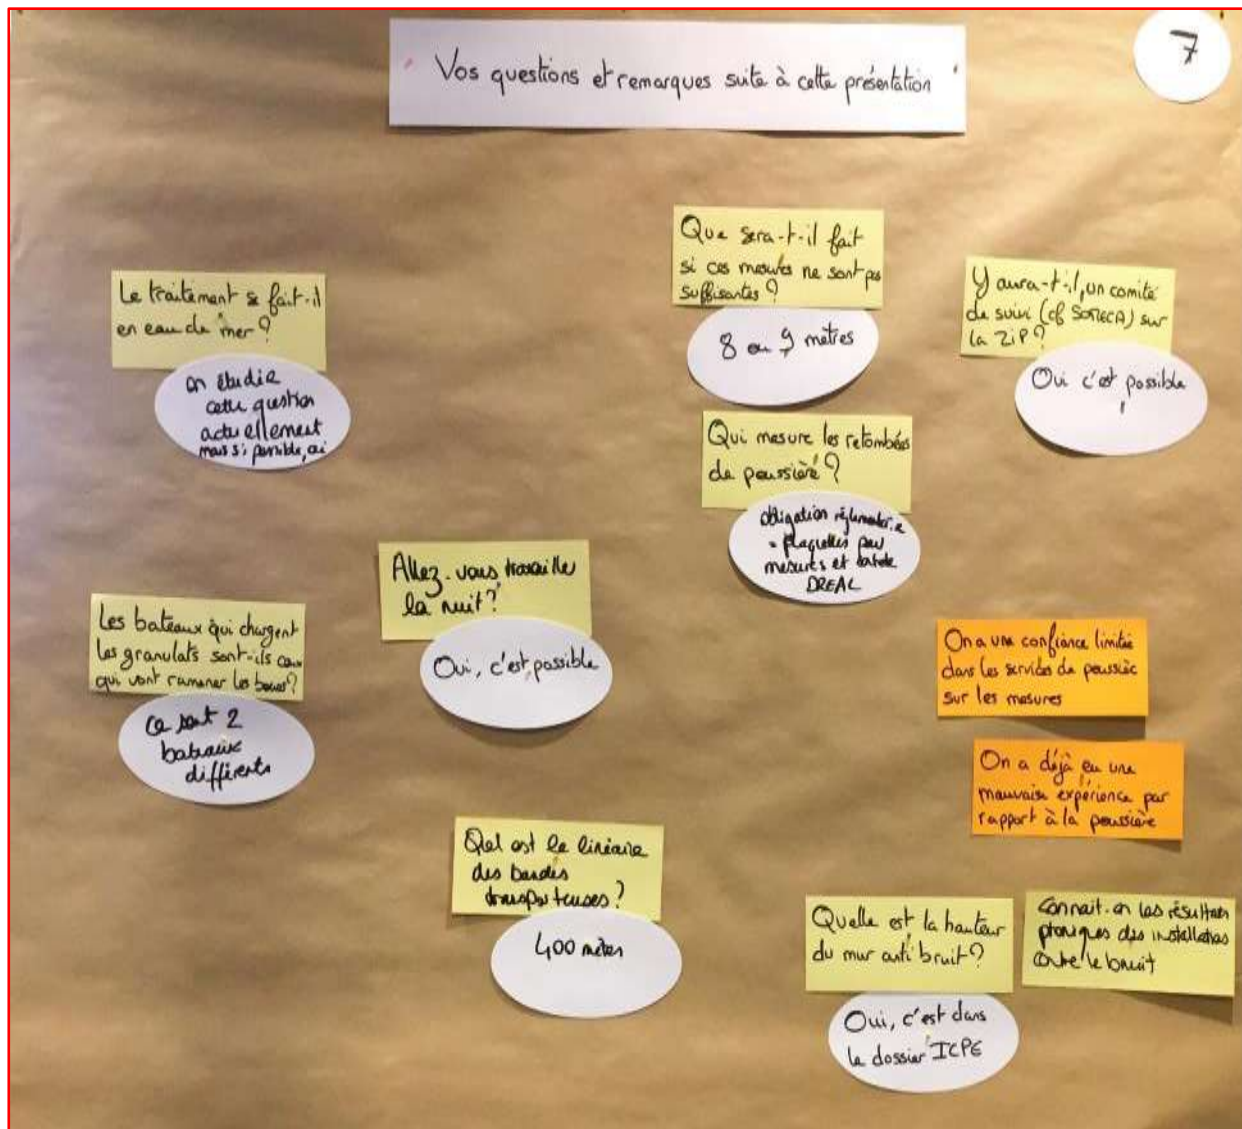 Vos questions et remarques suite à cette présentation
7
Le traitement se fait-il
en eau de mer ?
on étudie
cette question
actuellement
mais si possible, oui
Que sera-t-il fait
si ces mesures ne sont pas
suffisantes ?
8 ou 9 mètres
Y aura-t-il, un comité
de suivi (cf SOMECA) sur
la ZiP ?
Oui c'est possible
Qui mesure les retombées
de poussière ?
obligation réglementaire
plaquettes pour
mesures et
DREAL
Allez-vous travailler
la nuit ?
Oui, c'est possible
Les bateaux qui chargent
les granulats sont-ils ceux
qui vont ramener les boues ?
Ce sont 2
bateaux
différents
On a une confiance limitée
dans les services de poussière
sur les mesures
On a déjà eu une
mauvaise expérience par
rapport à la poussière
Quel est le linéaire
des bandes
transporteuses ?
400 mètres
Quelle est la hauteur
du mur anti bruit ?
Oui, c'est dans
le dossier ICPE
Connait-on les résultats
phoniques des installations
contre le bruit